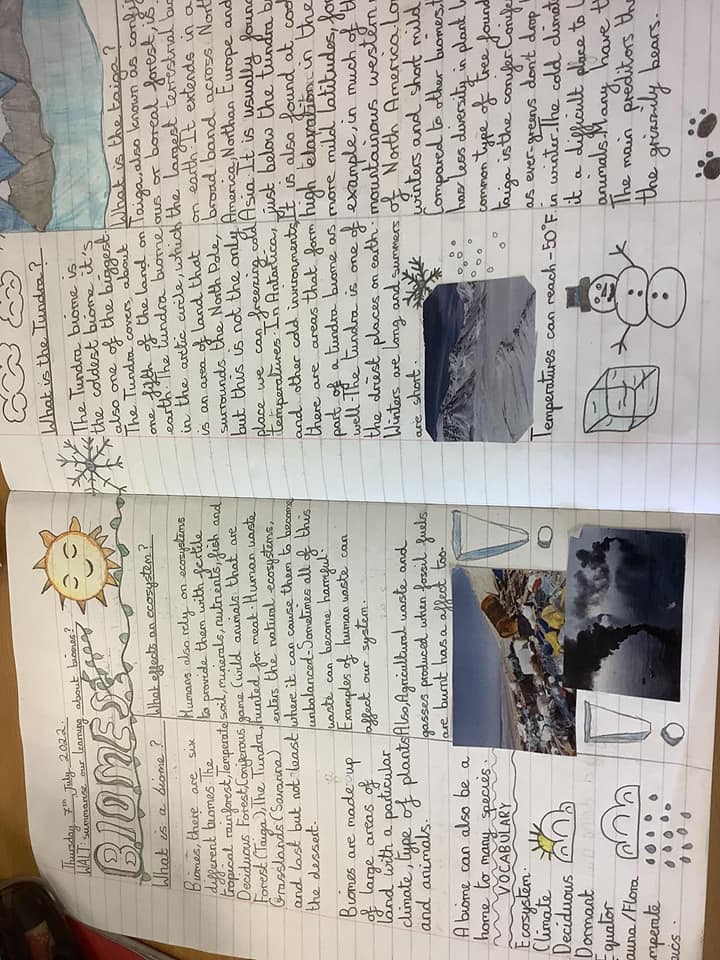 Thursday 7th July 2022.
WALT: summarise our learning about biomes?
BIOMES
What is a biome?
Biomes, there are six
different biomes. The
Tropical rainforest, Temperate
Deciduous Forest, Coniferous
Forest (Taiga), The Tundra,
Grasslands (Savanna)
and last but not least
the dessert.
Biomes are made up
of large areas of
land with a particular
climate, type of plants
and animals.
A biome can also be a
home to many species.
VOCABULARY
Ecosystem.
Climate
Deciduous
Dormant
Equator
auna/Flora
mperate
pics.
What effects an ecosystem?
Humans also rely on ecosystems
to provide them with fertile
soil, minerals, nutrients, fish and
game (wild animals that are
hunted for meat. Human waste
enters the natural ecosystems,
where it can cause them to become
unbalanced. Sometimes all of this
waste can become harmful.
Examples of human waste can
affect our system.
Also, Agricultural waste and
gasses produced when fossil fuels
are burnt has a affect too.
What is the Tundra?
The Tundra biome is
the coldest biome it's
also one of the biggest.
The Tundra covers about
one fifth of the land on
earth. The tundra biome
in the artic circle, which
is an area of land that
surrounds the North Pole,
but this is not the only
place we can freezing cold
temperatures. In Antartica,
and other cold inveronments
there are areas that form
part of a tundra biome as
well. The tundra is one of
the driest places on earth.
Winters are long and summers
are short.
Temperatures can reach -50°F.
What is the taiga?
Taiga, also known as conif
ous or boreal forest, is
the largest terrestrial bio
on earth. It extends in a
broad band across North
America, Northan Europe and
Asia. It is usually found
just below the tundra b
It is also found at cool
high elavation in the
more mild latitudes, for
example, in much of th
mountainous western
of North America. Lon
winters and short mild
Compared to other biomes, t
has less diversity in plant
common type of tree found
taiga is the conifer. Conife
as ever-greens don't drop
in winter. The cold climat
it a difficult place to l
animals. Many have t
The main preditors th
the grizzily bears.